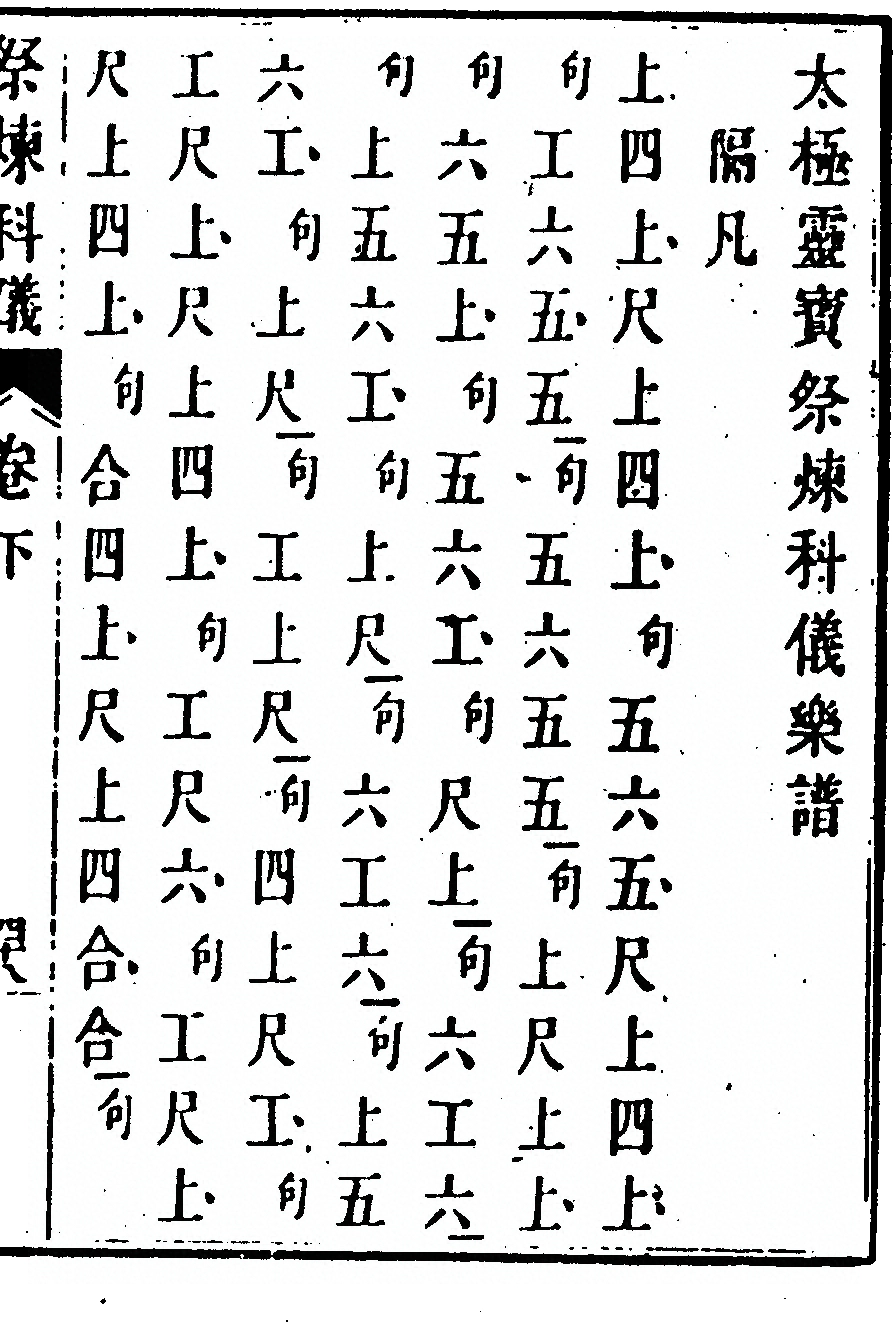 太極靈寶祭煉科儀樂譜
隔凡
上四上、尺上四上、句五六五、尺上四上、
句工六五、五一句五六五五一句上尺上上、
句六五上、句五六工、句尺上一句六工六一
句上五六工、句上尺一句六工六一句上五
六工、句上尺一句工上尺一句四上尺工、句
工尺上、尺上四上、句工尺六、句工尺上、
尺上四上、句合四上、尺上四合、合一句
祭煉科儀 卷下